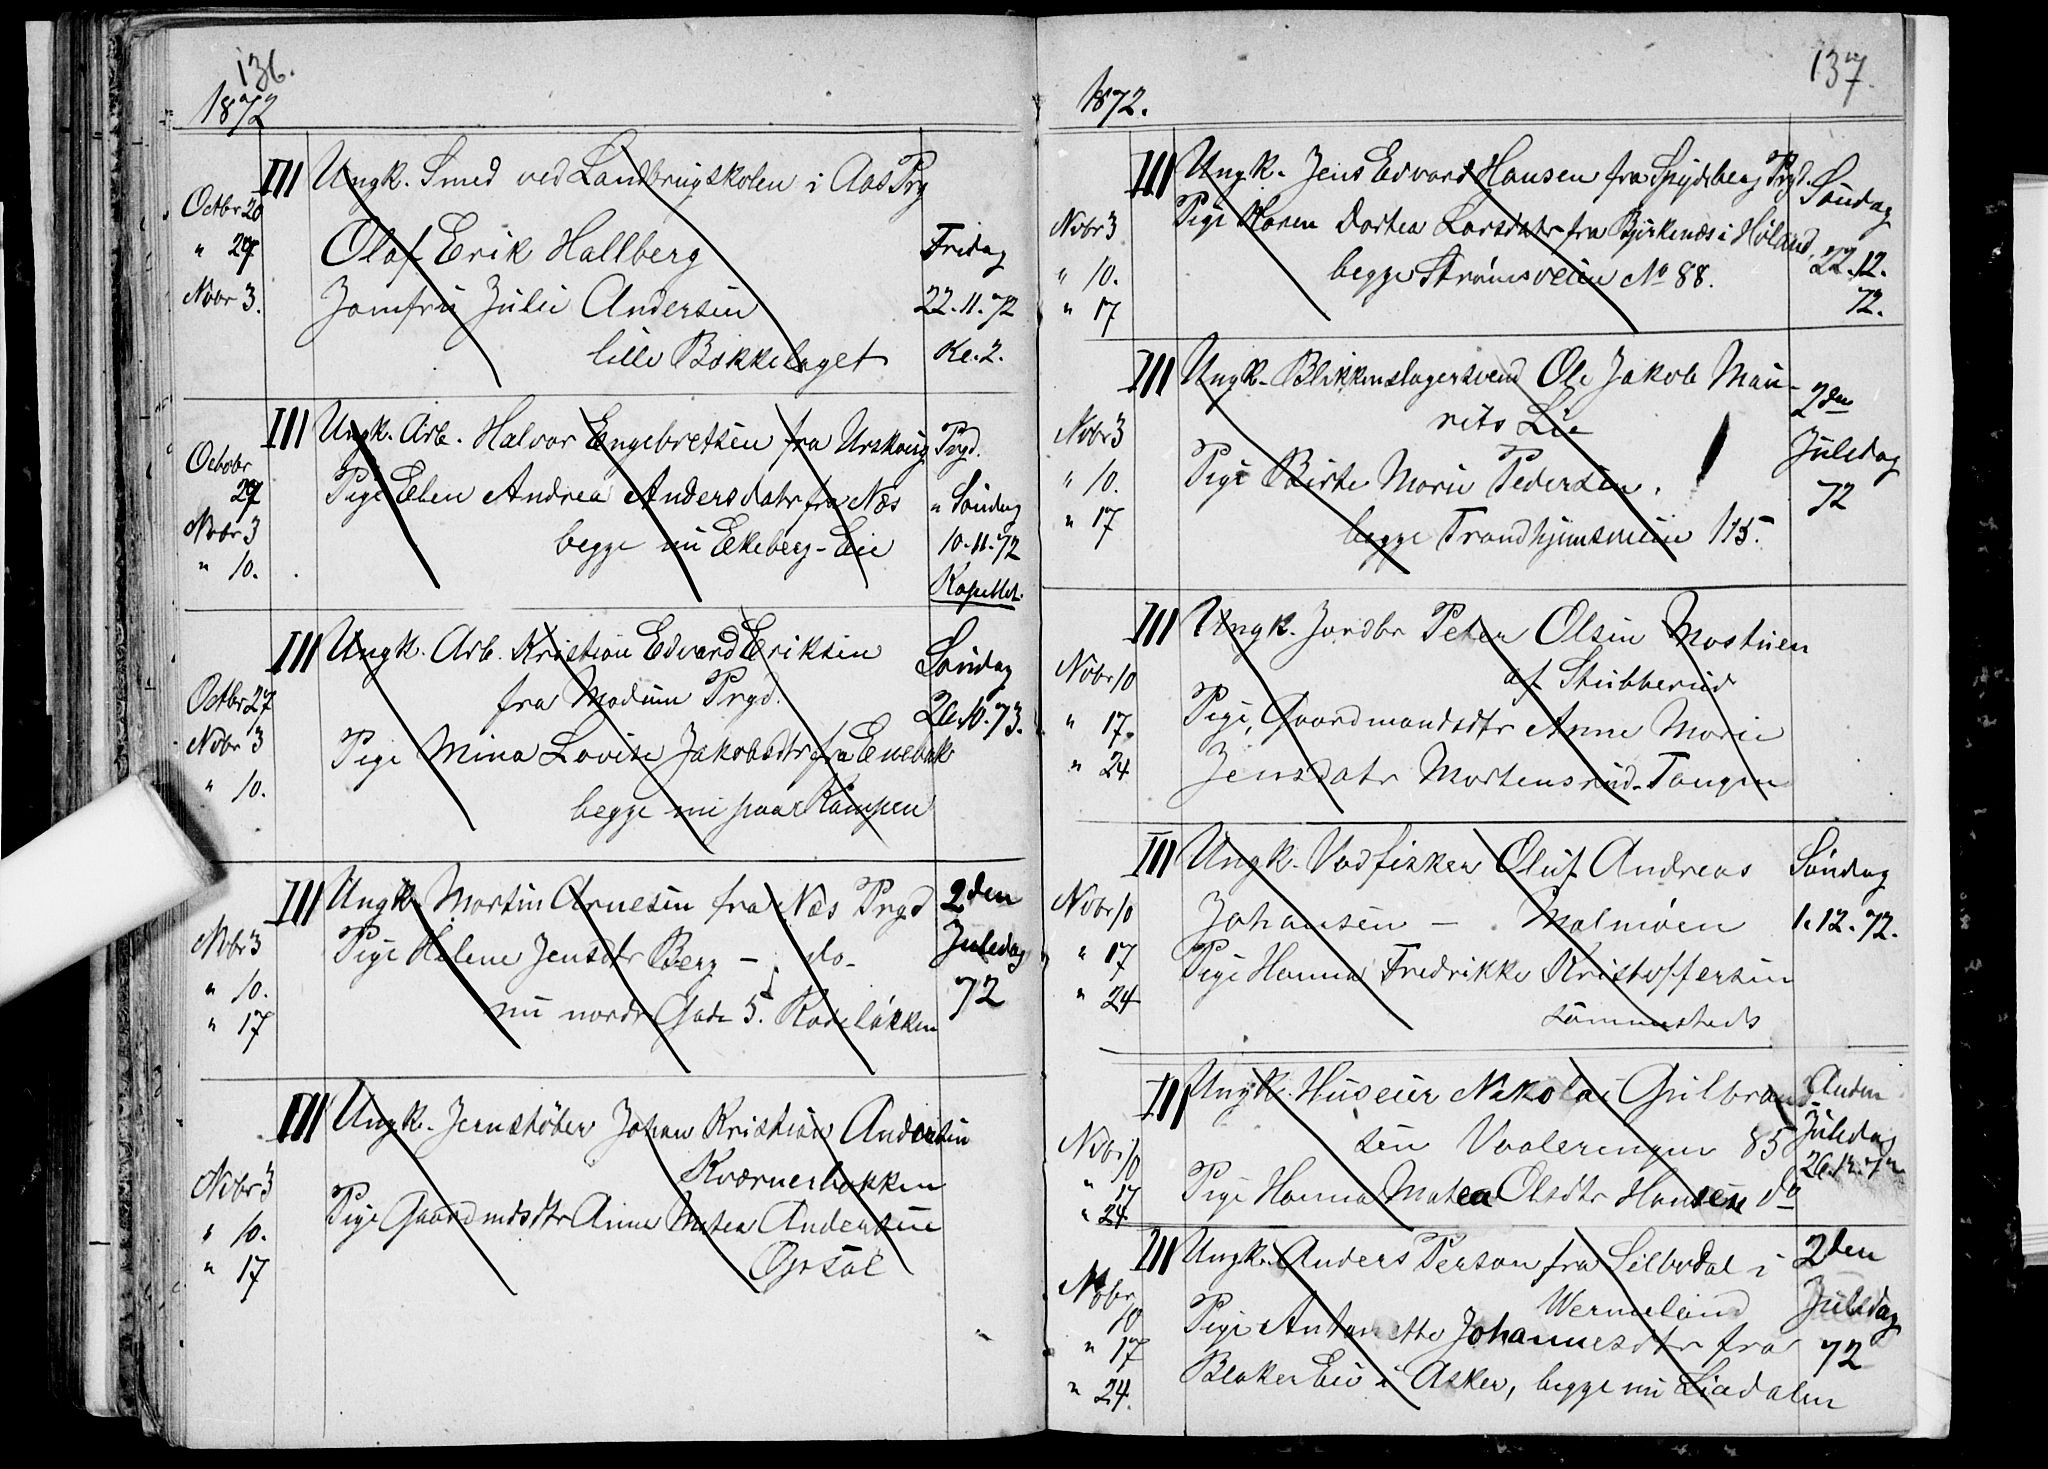 136.
1872
III Ungk. Smed ved Landbrugskolen i Aas Prg
Octbr 20
" 27
Novbr 3.
Olaf Erik Hallberg
Jomfru Julie Andersen
lille Bækkelaget
Fredag
22.11.72
Kl. 2.
III Ungk. Arb. Halvor Engebretsen fra Urskoug Prgd.
Octobr
27
Novbr 3
" 10.
Pige Elen Andrea Andersdatr fra Næs
begge nu Ekeberg-Eie
" Søndag
10.11.72
Kapellet.
III Ungk. Arb. Kristian Edvard Eriksen
fra Modum Prgd.
Octbr 27
Novbr 3
" 10.
Pige Mina Lovise Jakobsdtr fra Enebak
begge nu paa Kampen
Søndag
III Ungk. Martin Arnesen fra Næs Prgd
Novbr 3
" 10.
" 17
Pige Helene Jensdtr Berg - do-
nu nordr Gade 5. Rodeløkken
2den
Juledag
72
III Ungk. Jernstøber Johan Kristian Andersen
Kværnerbakken
Novbr 3
" 10.
" 17
Pige Gaardmdsdtr Anne Matea Andersen
Opsal
137
1872.
III Ungk. Jens Edvard Hansen fra Spydeberg Prgd.
Novbr 3
" 10.
" 17
Pige Karen Dortea Larsdatr fra Bjørkenæs i Høland,
begge Strømsveien No 88.
Søndag
22.12.
72.
III Ungk. Blikkenslagersvend Ole Jakob Mau-
rits Lie
Novbr 3
" 10.
" 17
Pige Birte Marie Pedersen.
begge Trondhjemsveien 115.
2den
Juledag
72
III Ungk. Jordbr Peter Olsen Mostuen
af Stubberud
Novbr 10
" 17.
" 24
Pige, Gaardmandsdtr Anne Marie
Jensdatr Mortensrud-Tangen
III Ungk. Vadfisker Oluf Andreas
Johansen - Malmøen
Novbr 10
" 17
" 24
Pige Hanna Fredrikke Kristoffersen
sammesteds
Søndag
1.12.72.
III Ungk. Huseier Nikolai Gulbrand
sen Vaalerengen 85
Novbr 10
" 17
" 24
Pige Hanna Matea Olsdtr Hansen do
Anden
Juledag
26.12.72
III Ungk. Anders Person fra Silbodal i
Wermeland
Novbr
10
" 17
" 24.
Pige Antonette Johannesdtr fra
Blaker Eie i Asker, begge nu Liadalen
2den
Juledag
72